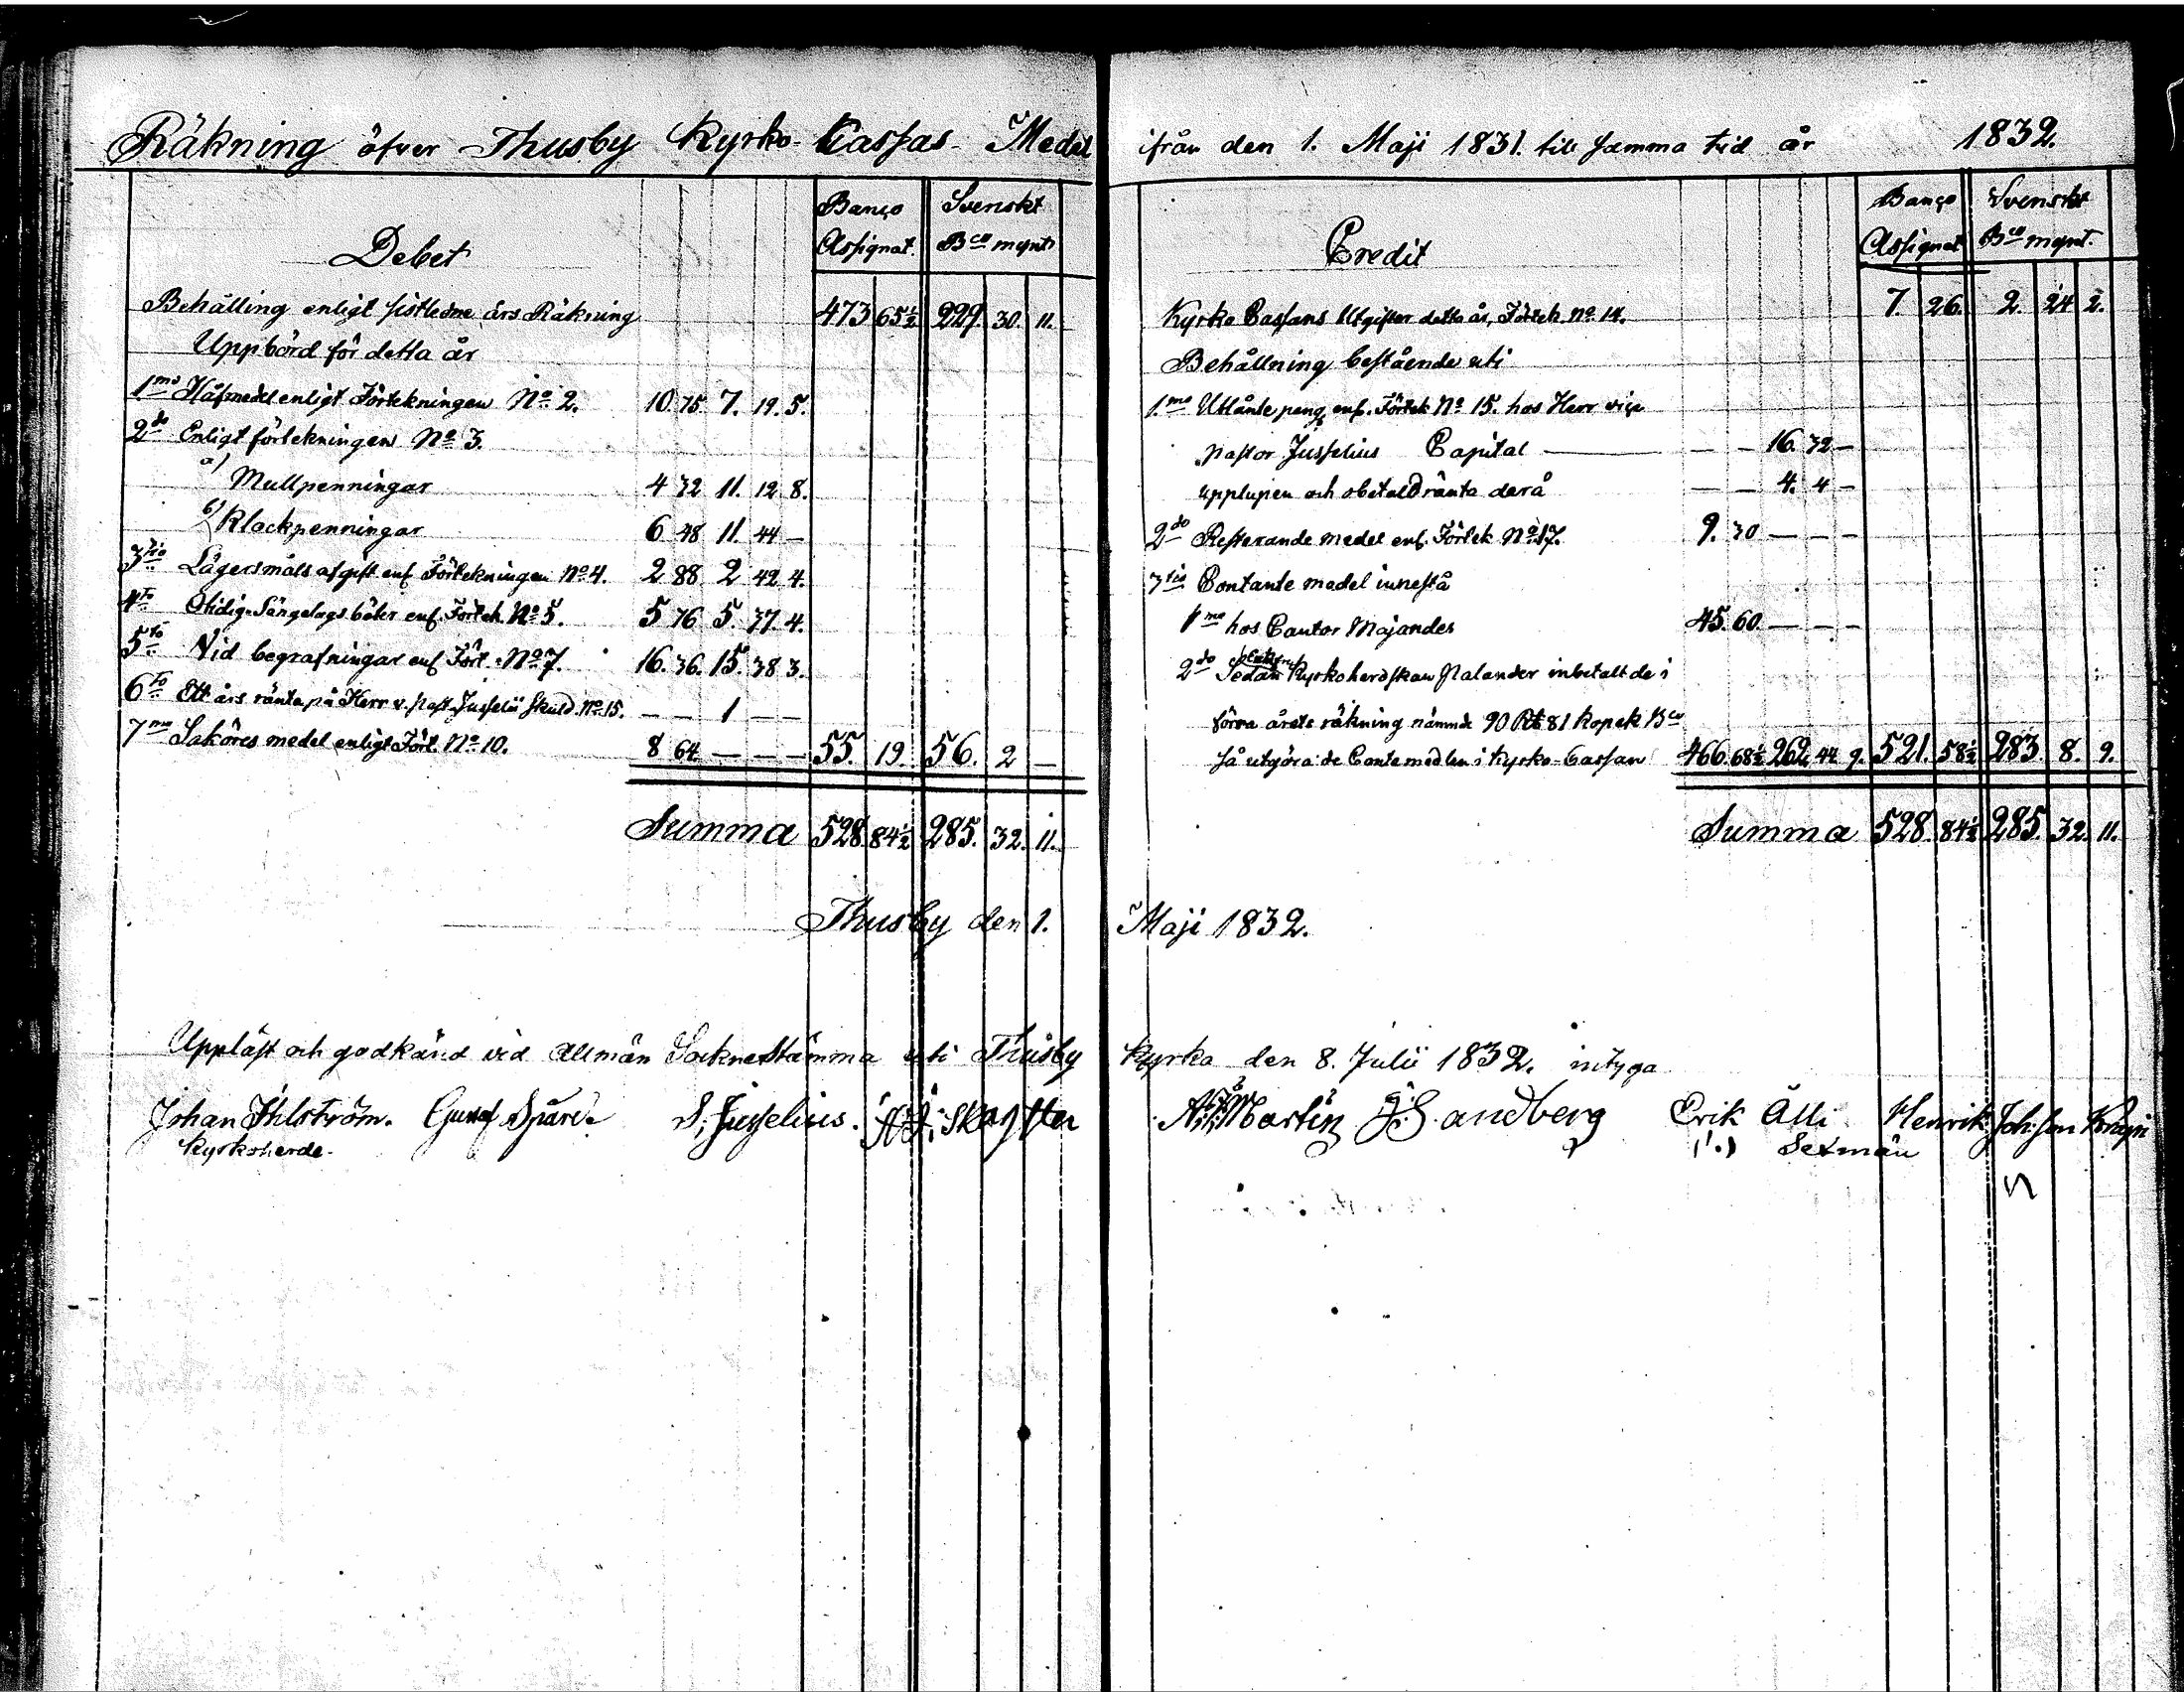 Räkning öfver Thusby Kyrko-Cassas Medel ifrån den 1. Maji 1831. till samma tid år 1832.
Banço Svenskt
Debet Assignat. Bco mynt
Behålling enligt sistledne års Räkning 473 65½ 229. 30. 11.
Uppbörd för detta år
1mo Håfmedel enligt Förtekningen No 2. 10. 75. 7. 19. 5.
2do Enligt förtekningen No 3.
a) Mullpenningar 4 32 11. 12 8.
b) Klockpenningar 6 48 11. 44 —
3tio Lägersmåls afgift enl. Förtekningen No 4. 2 88 2 42 4.
4to Otidig Sängelags böter enl. Förtek. No 5. 5 76 5. 37. 4.
5to Vid begrafningar enl. Fört. No 7. 16. 36. 15. 38 3.
6to Ett års ränta på Herr v. Past. Jusselii skuld. No 15. — — 1 — —
7mo Saköres medel enligt Fört. No 10. 8 64. — — — 55. 19. 56. 2 —
Summa 528. 84½ 285. 32. 11.
Banço Svenskt
Credit Assignat Bco mynt.
Kyrko Cassans Utgifter detta år, Förtek. No 14. 7. 26. 2. 24 2.
Behållning bestående uti
1mo Utlånte peng. enl. Förtek No 15. hos Herr vice
Pastor Jusselius Capital — — — 16. 32 —
upplupen och obetald ränta derå — — 4. 4 —
2do Resterande medel enl. Förtek No 17. 9. 30 — — —
3tio Contante medel innestå
1mo hos Cantor Majander 45. 60. — — —
2do Sedan Kyrkoherdskan Nalander inbetalt de i
förra årets räkning nämnde 90 Rb 81 Kopek Bco
så utgöra de Conta medlen i Kyrko-Cassan 466. 68½ 262. 44 9. 521. 58½ 283. 8. 9.
Summa 528. 84½ 285. 32. 11.
Thusby den 1. Maji 1832.
Uppläst och godkänd vid Allmän Sockne Stämma uti Thusby Kyrka den 8. Julii 1832. intyga
Johan Ihlström. Gustaf S. Jusselius. Martin G. Sandberg Erik Alli Henrik
Kyrkoherde. Sexmän